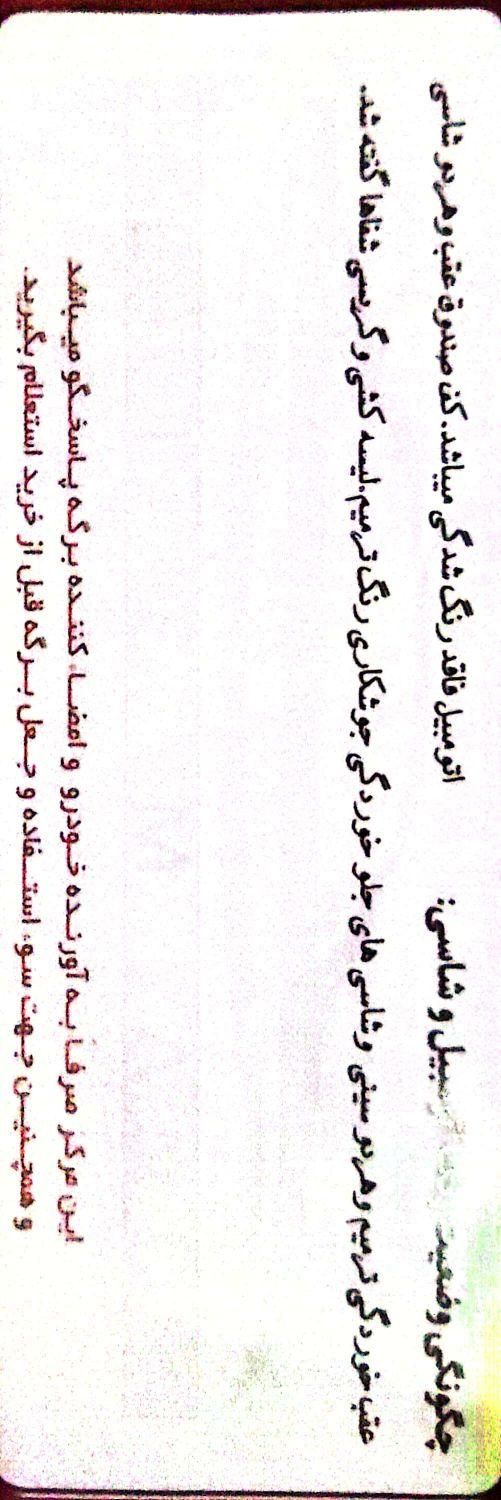 چگونگی وضعیت اتومبیل و شاسی: اتومبیل فاقد رنگ شدگی میباشد. کف صندوق عقب و هر دو شاسی
عقب خوردگی ترمیم و هر دو سینی و شاسی های جلو خوردگی جوشکاری رنگ ترمیم. لیسه کشی و گریسی شفاها گفته شد.
این مرکز صرفا به آورنده خودرو و امضاء کننده برگه پاسخگو میباشد
و همچنین جهت سوء استفاده و جعل برگه قبل از خرید استعلام بگیرید.